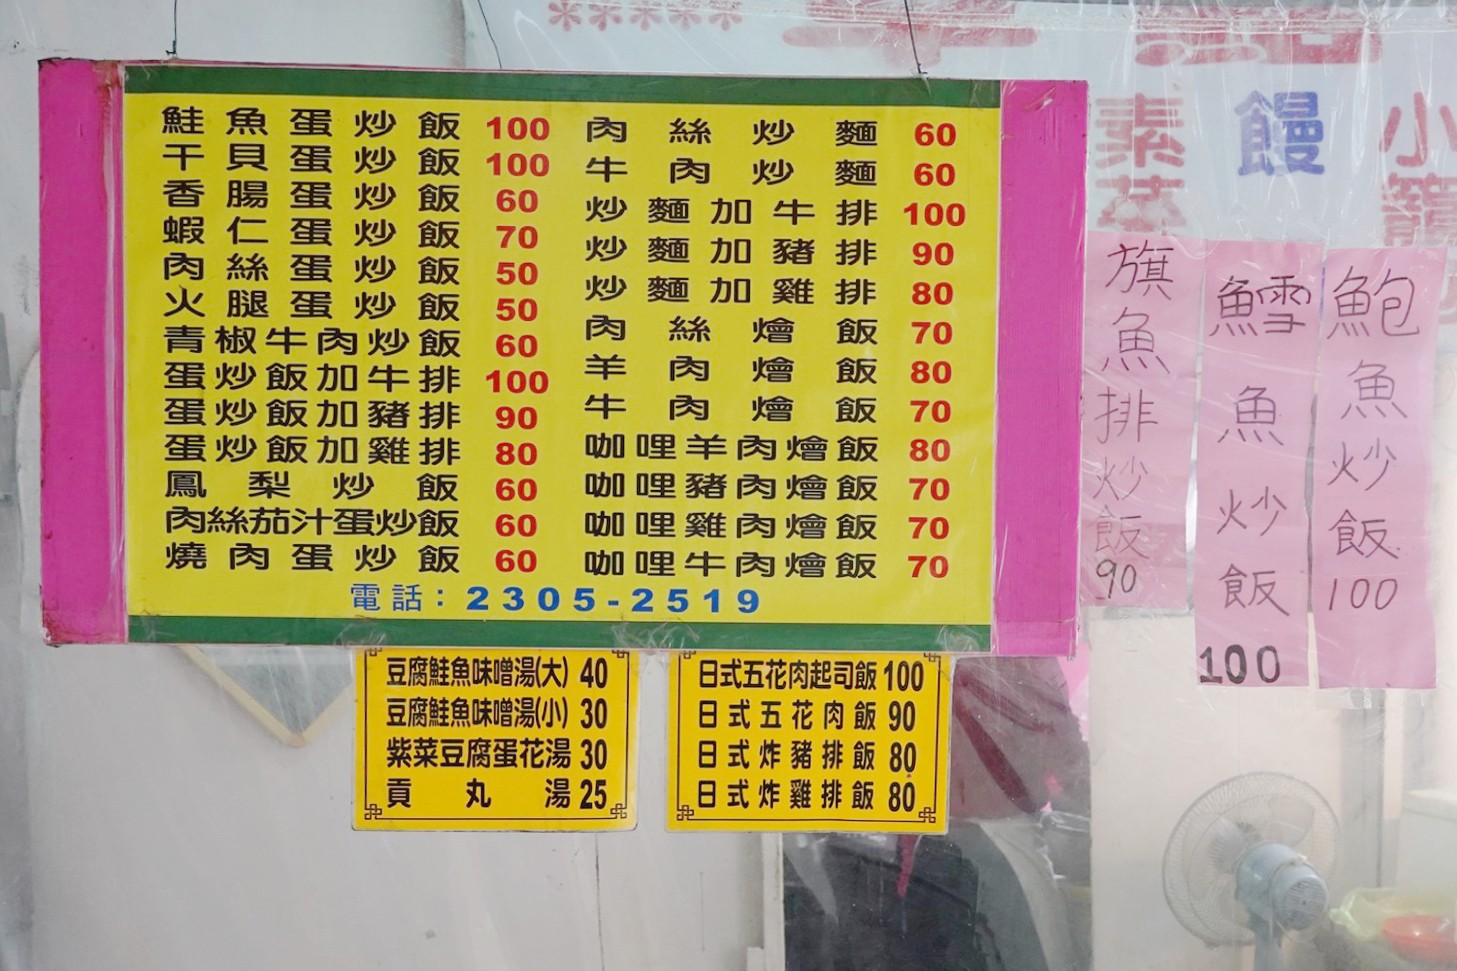 鮭魚蛋炒飯 100
干貝蛋炒飯 100
香腸蛋炒飯 60
蝦仁蛋炒飯 70
肉絲蛋炒飯 50
火腿蛋炒飯 50
青椒牛肉炒飯 60
蛋炒飯加牛排 100
蛋炒飯加豬排 90
蛋炒飯加雞排 80
鳳梨炒飯 60
肉絲茄汁蛋炒飯 60
燒肉蛋炒飯 60
肉絲炒麵 60
牛肉炒麵 60
炒麵加牛排 100
炒麵加豬排 90
炒麵加雞排 80
肉絲燴飯 70
羊肉燴飯 80
牛肉燴飯 70
咖哩羊肉燴飯 80
咖哩豬肉燴飯 70
咖哩雞肉燴飯 70
咖哩牛肉燴飯 70
電話：2305-2519
豆腐鮭魚味噌湯(大) 40
豆腐鮭魚味噌湯(小) 30
紫菜豆腐蛋花湯 30
貢丸湯 25
日式五花肉起司飯 100
日式五花肉飯 90
日式炸豬排飯 80
日式炸雞排飯 80
旗魚排炒飯 90
鱈魚炒飯 100
鮑魚炒飯 100
素菜
饅
小籠